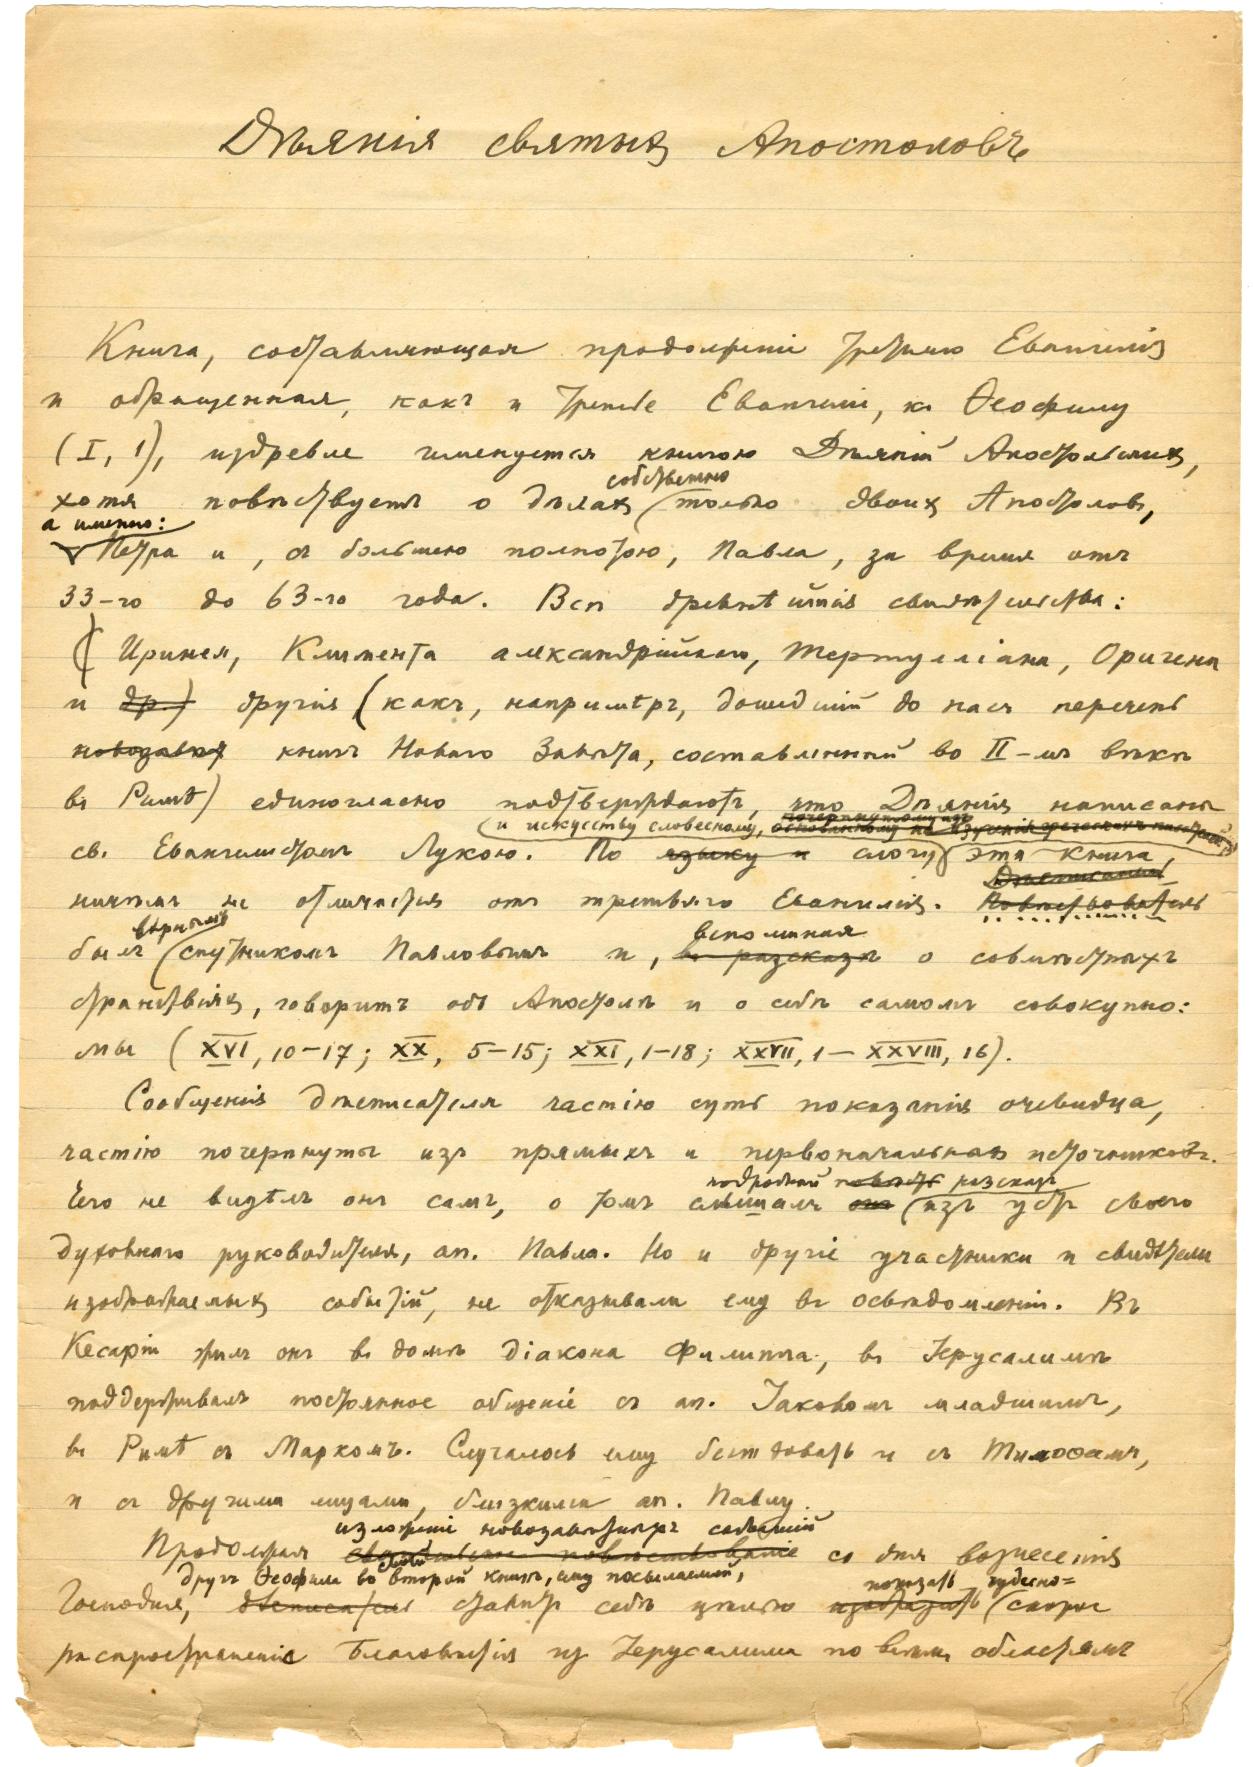 Дѣянія святыхъ Апостоловъ
Книга, составляющая продолженіе третьяго Евангелія
и обращенная, какъ и третье Евангеліе, къ Ѳеофилу
(I, 1), издревле именуется книгою Дѣяній Апостольскихъ,
собственно
хотя повѣствуетъ о дѣлахъ только двоихъ Апостоловъ,
а именно:
Петра и, съ большею полнотою, Павла, за время отъ
33-го до 63-го года. Всѣ древнѣйшія свидѣтельства:
Иринея, Климента александрійскаго, Тертулліана, Оригена
и др.) другія (какъ, напримѣръ, дошедшій до насъ перечень
новозавѣт книгъ Новаго Завѣта, составленный во II-мъ вѣкѣ
въ Римѣ) единогласно подтверждаютъ, что Дѣянія написаны
почерпнутому изъ
и искусству словесному, основанному на изученіи греческихъ писателей
св. Евангелистомъ Лукою. По языку и слогу эта книга,
Дѣеписатель
ничѣмъ не отличается отъ третьяго Евангелія. Повѣствователь
вѣрнымъ вспоминая
былъ спутникомъ Павловымъ и, въ разсказѣ о совмѣстныхъ
странствіяхъ, говоритъ объ Апостолѣ и о себѣ самомъ совокупно:
мы (XVI, 10-17; XX, 5-15; XXI, 1-18; XXVII, 1 — XXVIII, 16).
Сообщенія дѣеписателя частію суть показанія очевидца,
частію почерпнуты изъ прямыхъ и первоначальныхъ источниковъ.
подробный повѣсть разсказъ
Чего не видѣлъ онъ самъ, о томъ слышалъ онъ изъ устъ своего
духовнаго руководителя, ап. Павла. Но и другіе участники и свидѣтели
изображаемыхъ событій, не отказывали ему въ освѣдомленіи. Въ
Кесаріи жилъ онъ въ домѣ діакона Филиппа, въ Іерусалимѣ
поддерживалъ постоянное общеніе съ ап. Іаковомъ младшимъ,
въ Римѣ съ Маркомъ. Случалось ему бесѣдовать и съ Тимоѳеемъ,
и съ другими лицами, близкими ап. Павлу.
изложеніе новозавѣтныхъ событій
Продолжая повѣствованіе со дня вознесенія
другъ Ѳеофила во второй своей книгѣ, ему посылаемой,
показать чудесно=
Господня, дѣеписатель ставитъ себѣ цѣлью изобразить скорое
распространеніе Благовѣстія изъ Іерусалима по всѣмъ областямъ